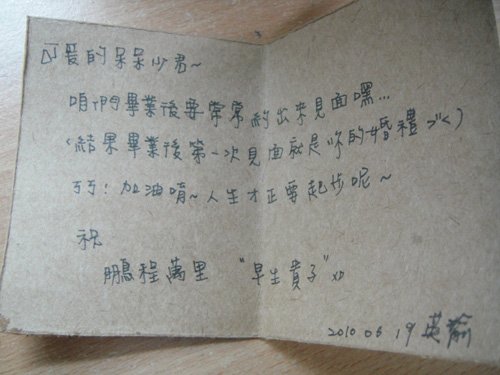 可愛的呆呆少君~
咱們畢業後要常常約出來見面嘿...
(結果畢業後第一次見面就是妳的婚禮 >"<)
ㄎㄎ!加油唷~人生才正要起步呢~
祝
鵬程萬里 "早生貴子" XD
2010 06 19 英瑜